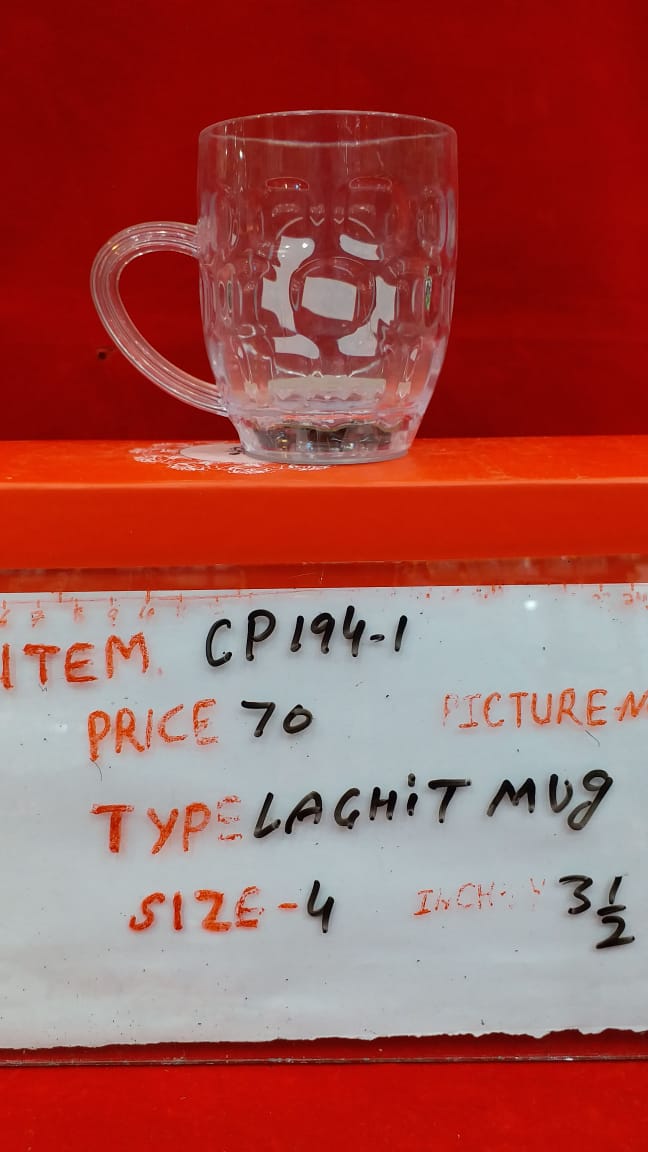 ITEM. CP194-1
PRICE 70 PICTURE-N
TYPE LAGHiT MUg
SIZE-4 INCH 3 1/2